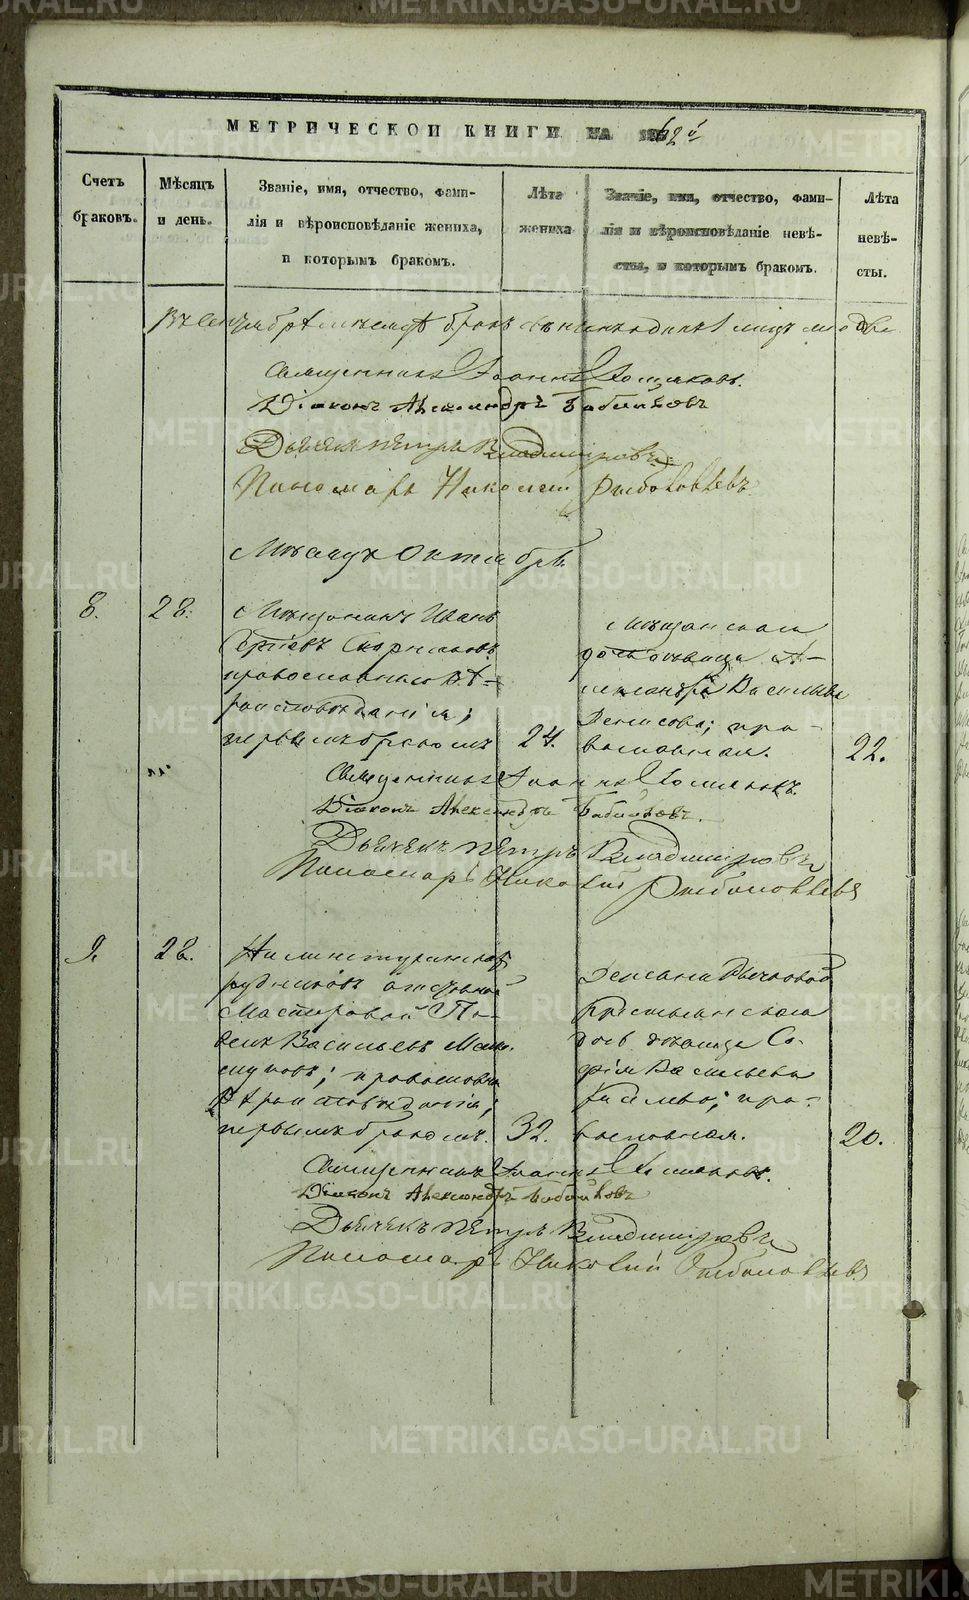 МЕТРИЧЕСКОЙ КНИГИ НА 1862й
Счетъ браковъ.
Мѣсяцъ и день.
Званіе, имя, отчество, фами-
лія и вѣроисповѣданіе жениха,
и которымъ бракомъ.
Лѣта
жениха
Званіе, имя, отчество, фами-
лія и вѣроисповѣданіе невѣ-
сты, и которымъ бракомъ.
Лѣта
невѣ-
сты.
Въ Сентябрѣ мѣсяцѣ
Священникъ Іоаннъ
Діаконъ Александръ Бабайловъ
Дьячекъ Петръ Владиміровъ
Пономарь Николай Рыболовлевъ
Мѣсяцъ Октябрь
8.
28.
Мѣщанинъ Иванъ
Сергіевъ
православнаго вѣ-
роисповѣданія;
первымъ бракомъ
24.
Мѣщанская
дочь дѣвица А-
лександра Васильева
Денисова; пра-
вославная.
22.
Священникъ Іоаннъ
Діаконъ Александръ Бабайловъ.
Дьячекъ Петръ Владиміровъ
Пономарь Николай Рыболовлевъ
9.
28.
рудниковъ
Мастеровой Па-
велъ Васильевъ
православна
вѣроисповѣданія;
первымъ бракомъ.
32.
Крестьянская
дочь дѣвица Со-
фія Васильева
пра-
вославная.
20.
Священникъ Іоаннъ
Діаконъ Александръ Бабайловъ
Дьячекъ Петръ Владиміровъ
Пономарь Николай Рыболовлевъ
METRIKI.GASO-URAL.RU